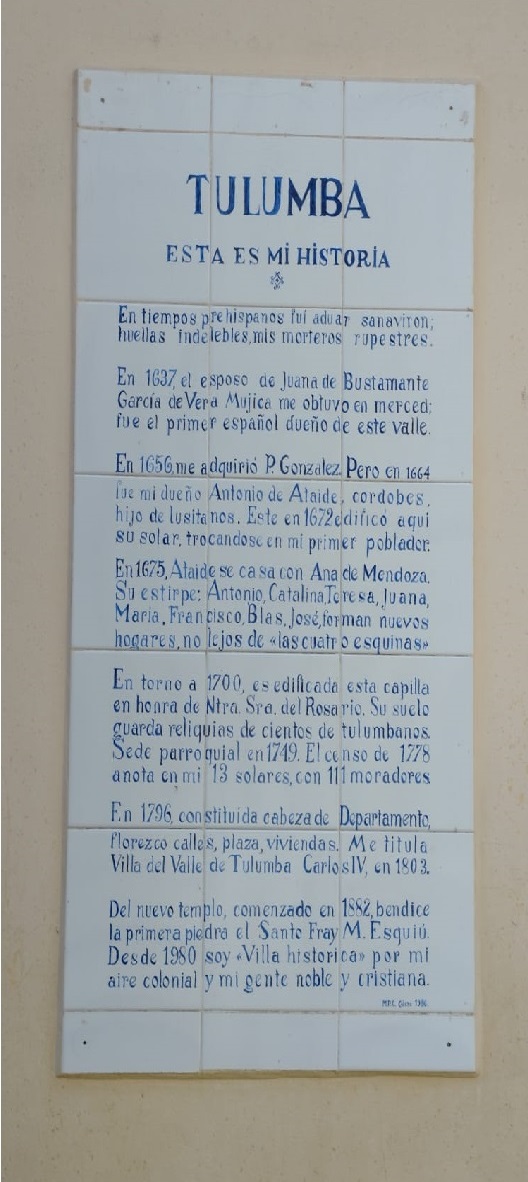 TULUMBA
ESTA ES MI HISTORIA
En tiempos prehispanos fui aduar sanaviron;
huellas indelebles, mis morteros rupestres.
En 1637, el esposo de Juana de Bustamante
García de Vera Mujica me obtuvo en merced;
fue el primer español dueño de este valle.
En 1656, me adquirió P. González. Pero en 1664
fue mi dueño Antonio de Ataide, cordobes,
hijo de lusitanos. Este en 1672 edificó aqui
su solar, trocandose en mi primer poblador.
En 1675, Ataide se casa con Ana de Mendoza.
Su estirpe: Antonio, Catalina, Teresa, Juana,
María, Francisco, Blas, José, forman nuevos
hogares, no lejos de «las cuatro esquinas»
En torno a 1700, es edificada esta capilla
en honra de Ntra. Sra. del Rosario. Su suelo
guarda reliquias de cientos de tulumbanos.
Sede parroquial en 1749. El censo de 1778
anota en mi 13 solares, con 111 moradores
En 1796, constituida cabeza de Departamento,
florezco calles, plaza, viviendas. Me titula
Villa del Valle de Tulumba Carlos IV, en 1803.
Del nuevo templo, comenzado en 1882, bendice
la primera piedra el Santo Fray M. Esquiú.
Desde 1980 soy «Villa historica» por mi
aire colonial y mi gente noble y cristiana.